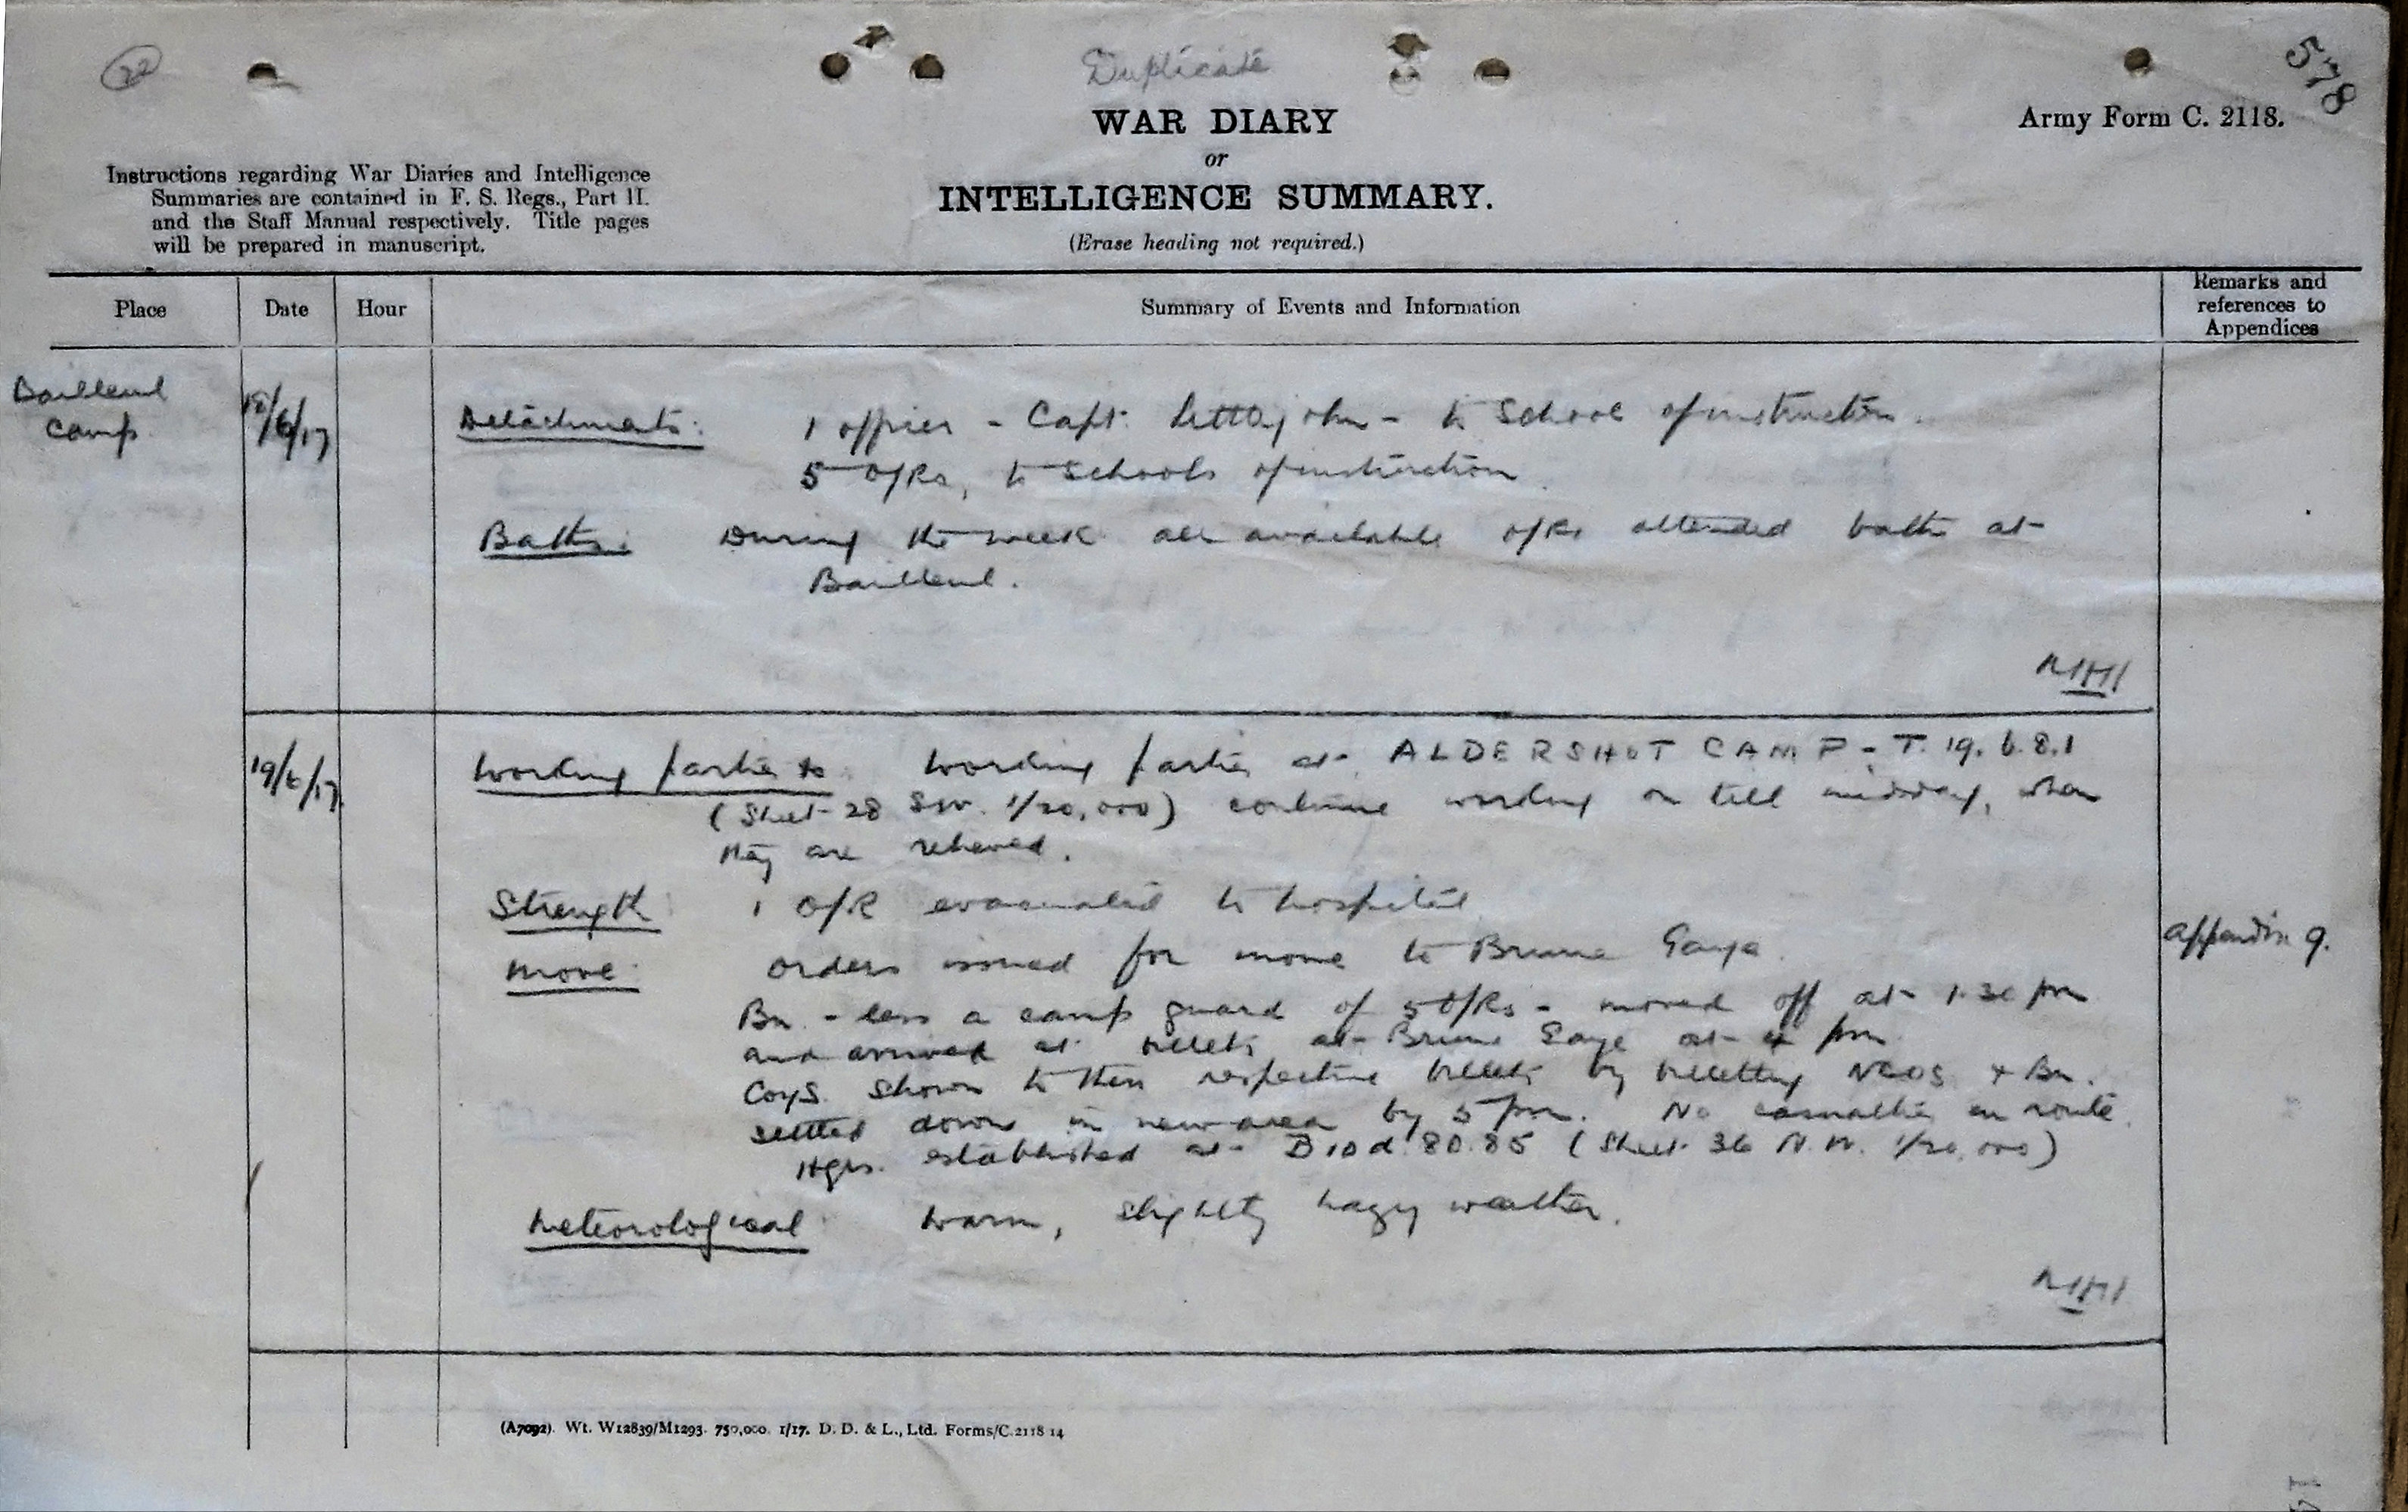 22
Duplicate
578
WAR DIARY
or
INTELLIGENCE SUMMARY.
(Erase heading not required.)
Army Form C. 2118.
Instructions regarding War Diaries and Intelligence
Summaries are contained in F. S. Regs., Part II.
and the Staff Manual respectively. Title pages
will be prepared in manuscript.
Place Date Hour Summary of Events and Information Remarks and references to Appendices
Bailleul
Camp
18/6/17
Detachments: 1 officer - Capt. Littlejohn - to School of instruction.
5 O/Rs, to Schools of instruction.
Baths: During the week all available o/Rs attended baths at
Bailleul.
19/6/17
Working parties Working parties at ALDERSHOT CAMP - T. 19. b. 8.1
(Sheet 28 S.W. 1/20,000) continue working on till midday, when
they are relieved.
Strength 1 O/R evacuated to hospital
Move: Orders issued for move to Brune Gaye.
Appendix 9.
Bn. - less a camp guard of 5 O/Rs - moved off at 1.30 pm
and arrived at billets at Brune Gaye at 4 pm
Coys. shown to their respective billets by billeting NCOs & Bn.
settled down in new area by 5 pm. No casualties en route.
Hqrs. established at B10d.80.85 (Sheet 36 N.W. 1/20,000)
Meteorological: Warm, slightly hazy weather.
(A7092). Wt. W12839/M1293. 750,000. 1/17. D. D. & L., Ltd. Forms/C.2118 14